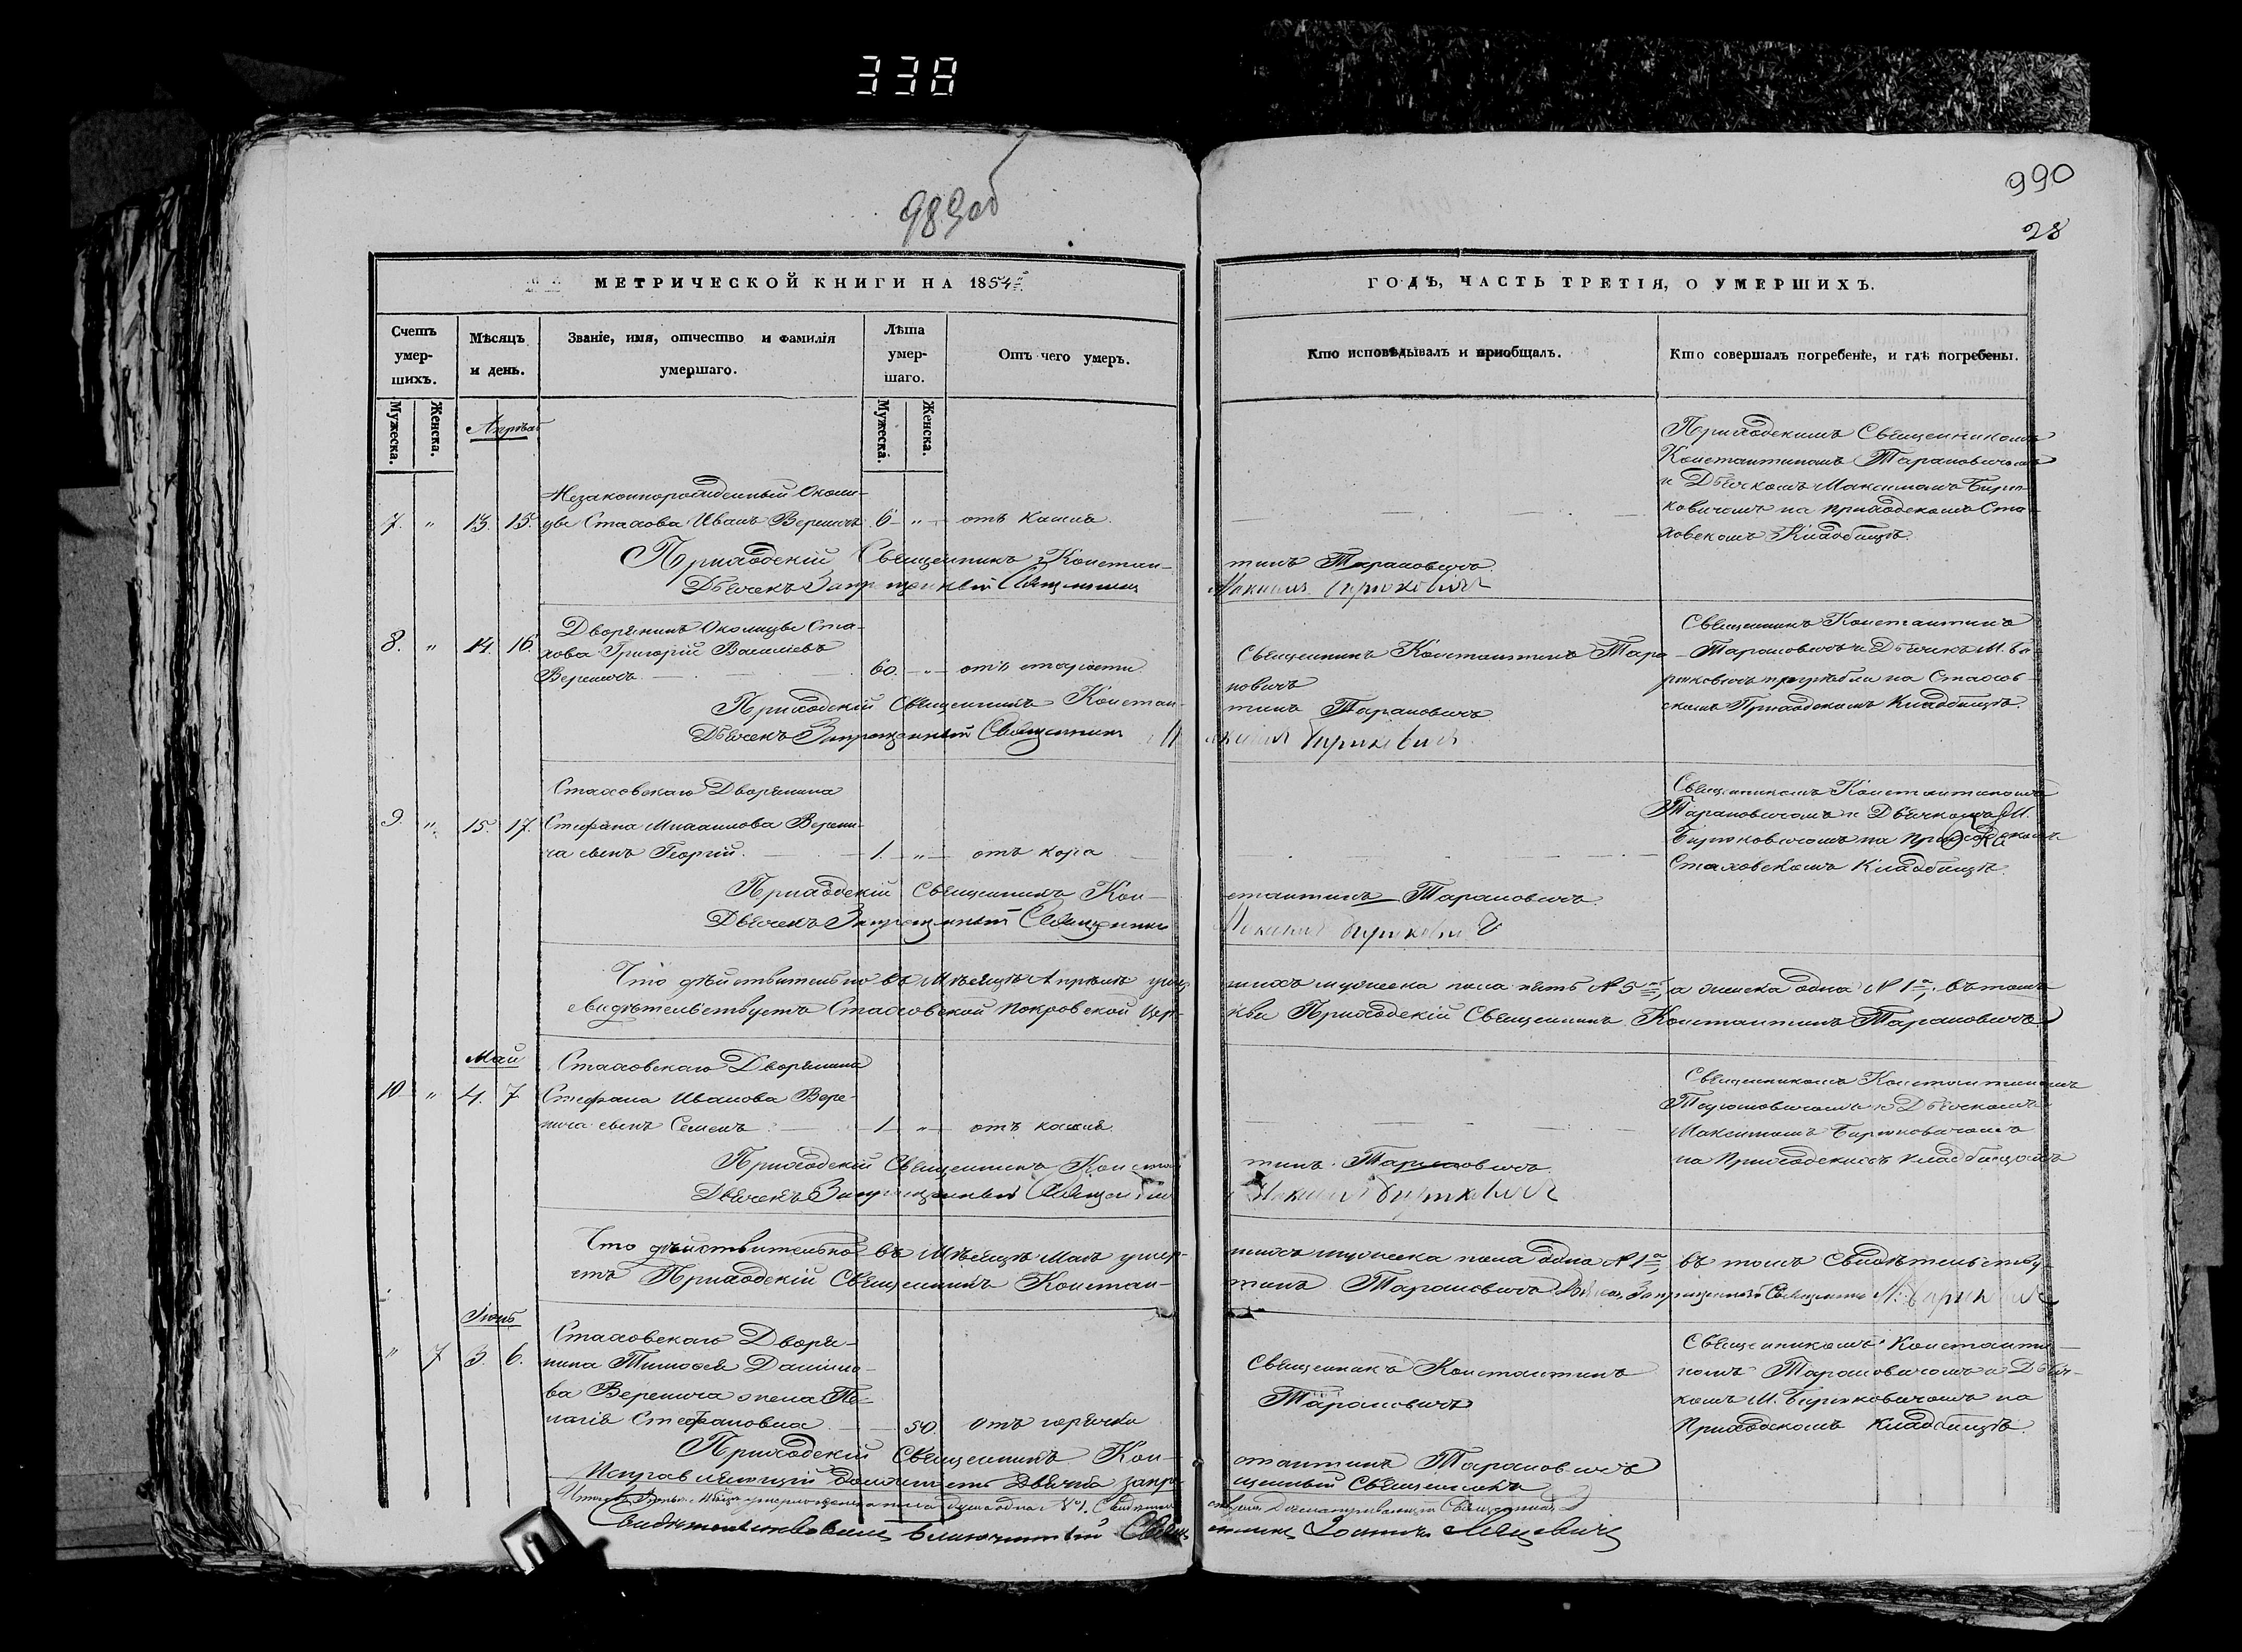 338
989об
990
28
МЕТРИЧЕСКОЙ КНИГИ НА 1854й
ГОДЪ, ЧАСТЬ ТРЕТІЯ, О УМЕРШИХЪ.
Счетъ умершихъ.
Мѣсяцъ и день.
Званіе, имя, отчество и фамилія умершаго.
Лѣта умершаго.
Отъ чего умеръ.
Кто исповѣдывалъ и приобщалъ.
Кто совершалъ погребеніе, и гдѣ погребены.
Мужеска.
Женска.
Мужеска.
Женска.
Апрѣль
Незаконнорожденный Околи-
7. " 13. 15. цы Стахова Иванъ Вереничъ 6 " отъ кашля.
Приходскимъ Священникомъ
Константиномъ Тарановичемъ
и Дьячкомъ Максимомъ Бирю-
ковичемъ на приходскомъ Ста-
ховскомъ Кладбищѣ.
Приходскій Священникъ Констан-
тинъ Тарановичъ
Дьячекъ Запрещенный Священникъ
Максимъ Бирюковичъ
Дворянинъ Околицы Ста-
8. " 14. 16. хова Григорій Василіевъ
Вереничъ 60. " отъ старости
Священникъ Константинъ Тара-
новичъ
Священникъ Константинъ
Тарановичъ и Дьячекъ М. Би-
рюковичъ погребли на Стахов-
скомъ Приходскомъ Кладбищѣ.
Приходскій Священникъ Констан-
тинъ Тарановичъ
Дьячекъ Запрещенный Священникъ М
аксимъ Бирюковичъ
Стаховскаго Дворянина
9. " 15. 17. Стефана Михайлова Верени-
ча сынъ Георгій. 1. " отъ кора
Священникомъ Константиномъ
Тарановичемъ и Дьячкомъ М.
Бирюковичемъ на Приходскомъ
Стаховскомъ Кладбищѣ.
Приходскій Священникъ Кон-
стантинъ Тарановичъ
Дьячекъ Запрещенный Священникъ
Максимъ Бирюковичъ
Что дѣйствительно въ Мѣсяцѣ Апрѣлѣ умер-
шихъ мужеска пола пять № 5, а женска одна № 1а; въ томъ
свидѣтельствуетъ Стаховской Покровской Цер-
кви Приходскій Священникъ Константинъ Тарановичъ
Май
Стаховскаго Дворянина
10 " 4. 7 Стефана Иванова Вере-
нича сынъ Семенъ 1 " отъ кашля.
Священникомъ Константиномъ
Тарановичемъ и Дьячкомъ
Максимомъ Бирюковичемъ
на Приходскомъ кладбищѣ
Приходскій Священникъ Констан
тинъ Тарановичъ.
Дьячекъ Запрещенный Священникъ
Максимъ Бирюковичъ
Что дѣйствительно въ Мѣсяцѣ Маѣ умер-
шихъ мужеска пола одна № 1а, въ томъ Свидѣтельству-
етъ Приходскій Священникъ Констан-
тинъ Тарановичъ Дьячекъ Запрещенный Священникъ М. Бирюковичъ
Іюнь
Стаховскаго Дворя-
" 7 3. 6. нина Тимофея Данило-
ва Веренича жена Пе-
лагія Стефановна 50. отъ горячки
Священникъ Константинъ
Тарановичъ
Священникомъ Константи-
номъ Тарановичемъ и Дьяч-
комъ М. Бирюковичемъ на
Приходскомъ Кладбищѣ.
Приходскій Священникъ Кон-
стантинъ Тарановичъ
Исправляющій должность Дьячка запре-
щенный Священникъ
Свидѣтельствовалъ Благочинный Священ
никъ Мацевичъ